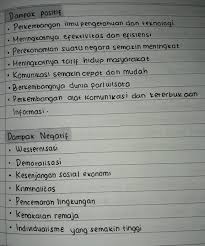 Dampak positif
• Perkembangan ilmu pengetahuan dan teknologi
• Meningkatnya efektivitas dan efisiensi
• Perekonomian suatu negara semakin meningkat
• Meningkatnya taraf hidup masyarakat
• Komunikasi semakin cepat dan mudah
• Berkembangnya dunia pariwisata
• Perkembangan alat komunikasi dan keterbukaan
Informasi.
Dampak Negatif
• Westernisasi
• Demoralisasi
• Kesenjangan sosial ekonomi
• Kriminalitas
• Pencemaran lingkungan
• Kenakalan remaja
• Individualisme yang semakin tinggi